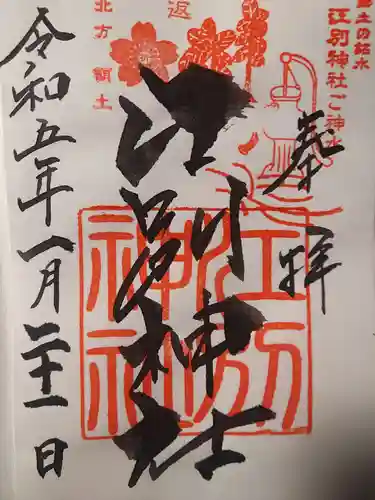 郷土の銘水
江別神社ご神水
奉拝
江別神社
返
北方領土
江別神社
令和五年一月二十一日